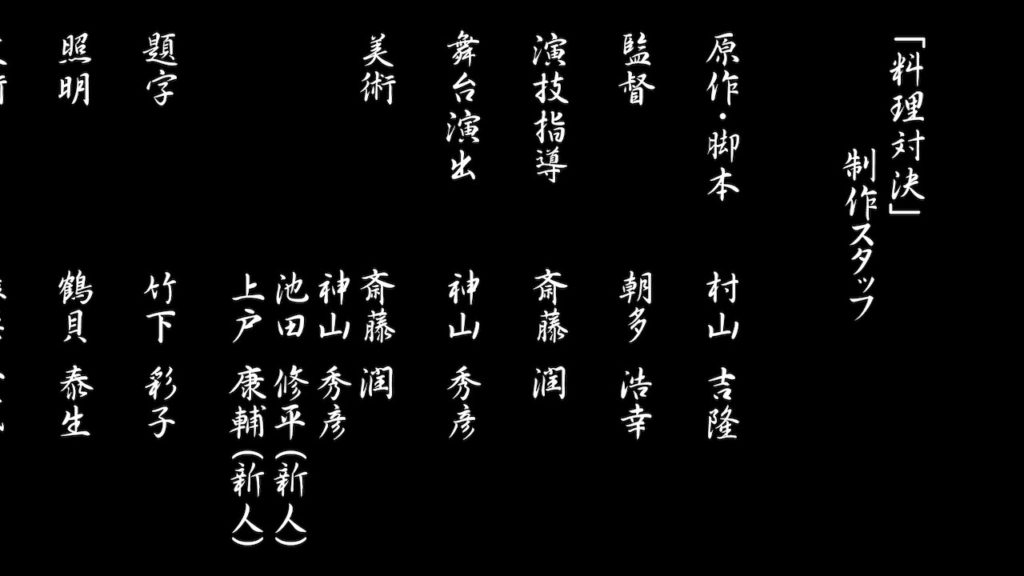 「料理対決」
制作スタッフ
原作・脚本 村山 吉隆
監督 朝多 浩幸
演技指導 斎藤 潤
舞台演出 神山 秀彦
美術 斎藤 潤
神山 秀彦
池田 修平(新人)
上戸 康輔(新人)
題字 竹下 彩子
照明 鶴貝 泰生